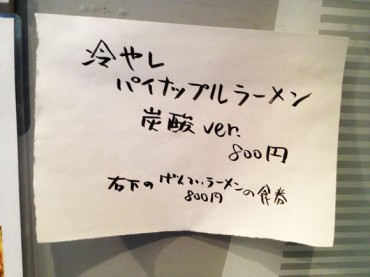 冷やし
パイナップルラーメン
炭酸 ver.
800円
右下のげんてい、ラーメンの食券
800円